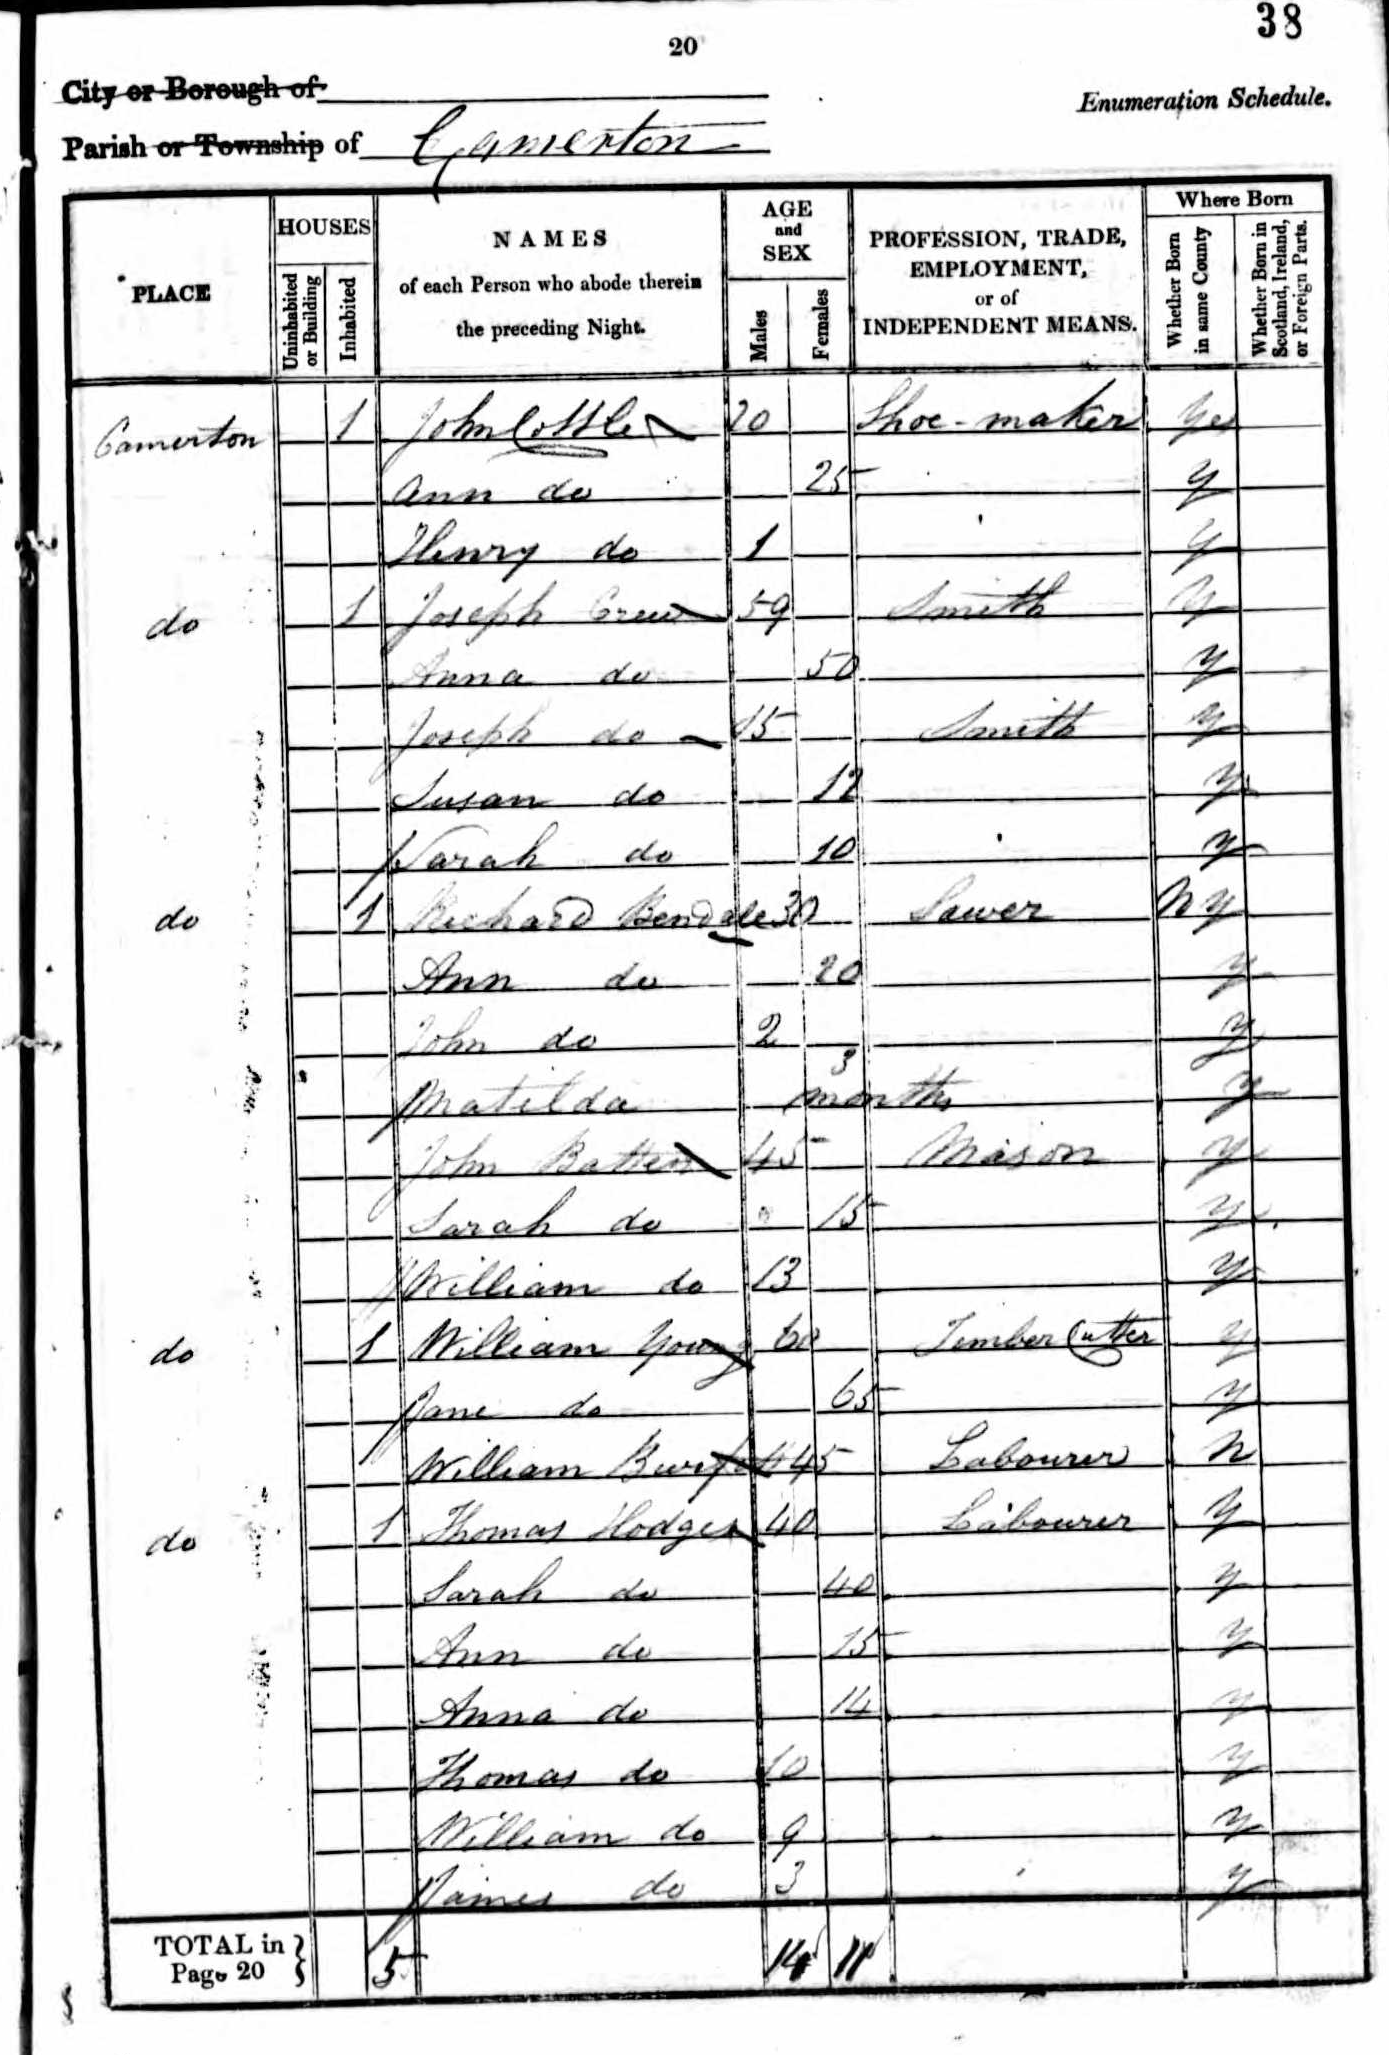 38
20
City or Borough of
Enumeration Schedule.
Parish or Township of Camerton
PLACE
HOUSES
Uninhabited or Building
Inhabited
NAMES
of each Person who abode therein
the preceding Night.
AGE
and
SEX
Males
Females
PROFESSION, TRADE,
EMPLOYMENT,
or of
INDEPENDENT MEANS.
Where Born
Whether Born in same County
Whether Born in Scotland, Ireland, or Foreign Parts.
Camerton 1 John Cottle 20 Shoe-maker Yes
Ann do 25 y
Henry do 1 y
do 1 Joseph Crew 59 Smith y
Anna do 50 y
Joseph do 15 Smith y
Susan do 12 y
Sarah do 10 y
do 1 Richard Bendale 30 Sawer N y
Ann do 20 y
John do 2 y
Matilda 3 months y
John Batten 45 Mason y
Sarah do 15 y
William do 13 y
do 1 William Young 60 Timber Cutter y
Jane do 65 y
William 45 Labourer N
do 1 Thomas Hodges 40 Labourer y
Sarah do 40 y
Ann do 15 y
Anna do 14 y
Thomas do 10 y
William do 9 y
James do 3 y
TOTAL in
Page 20 5 14 11